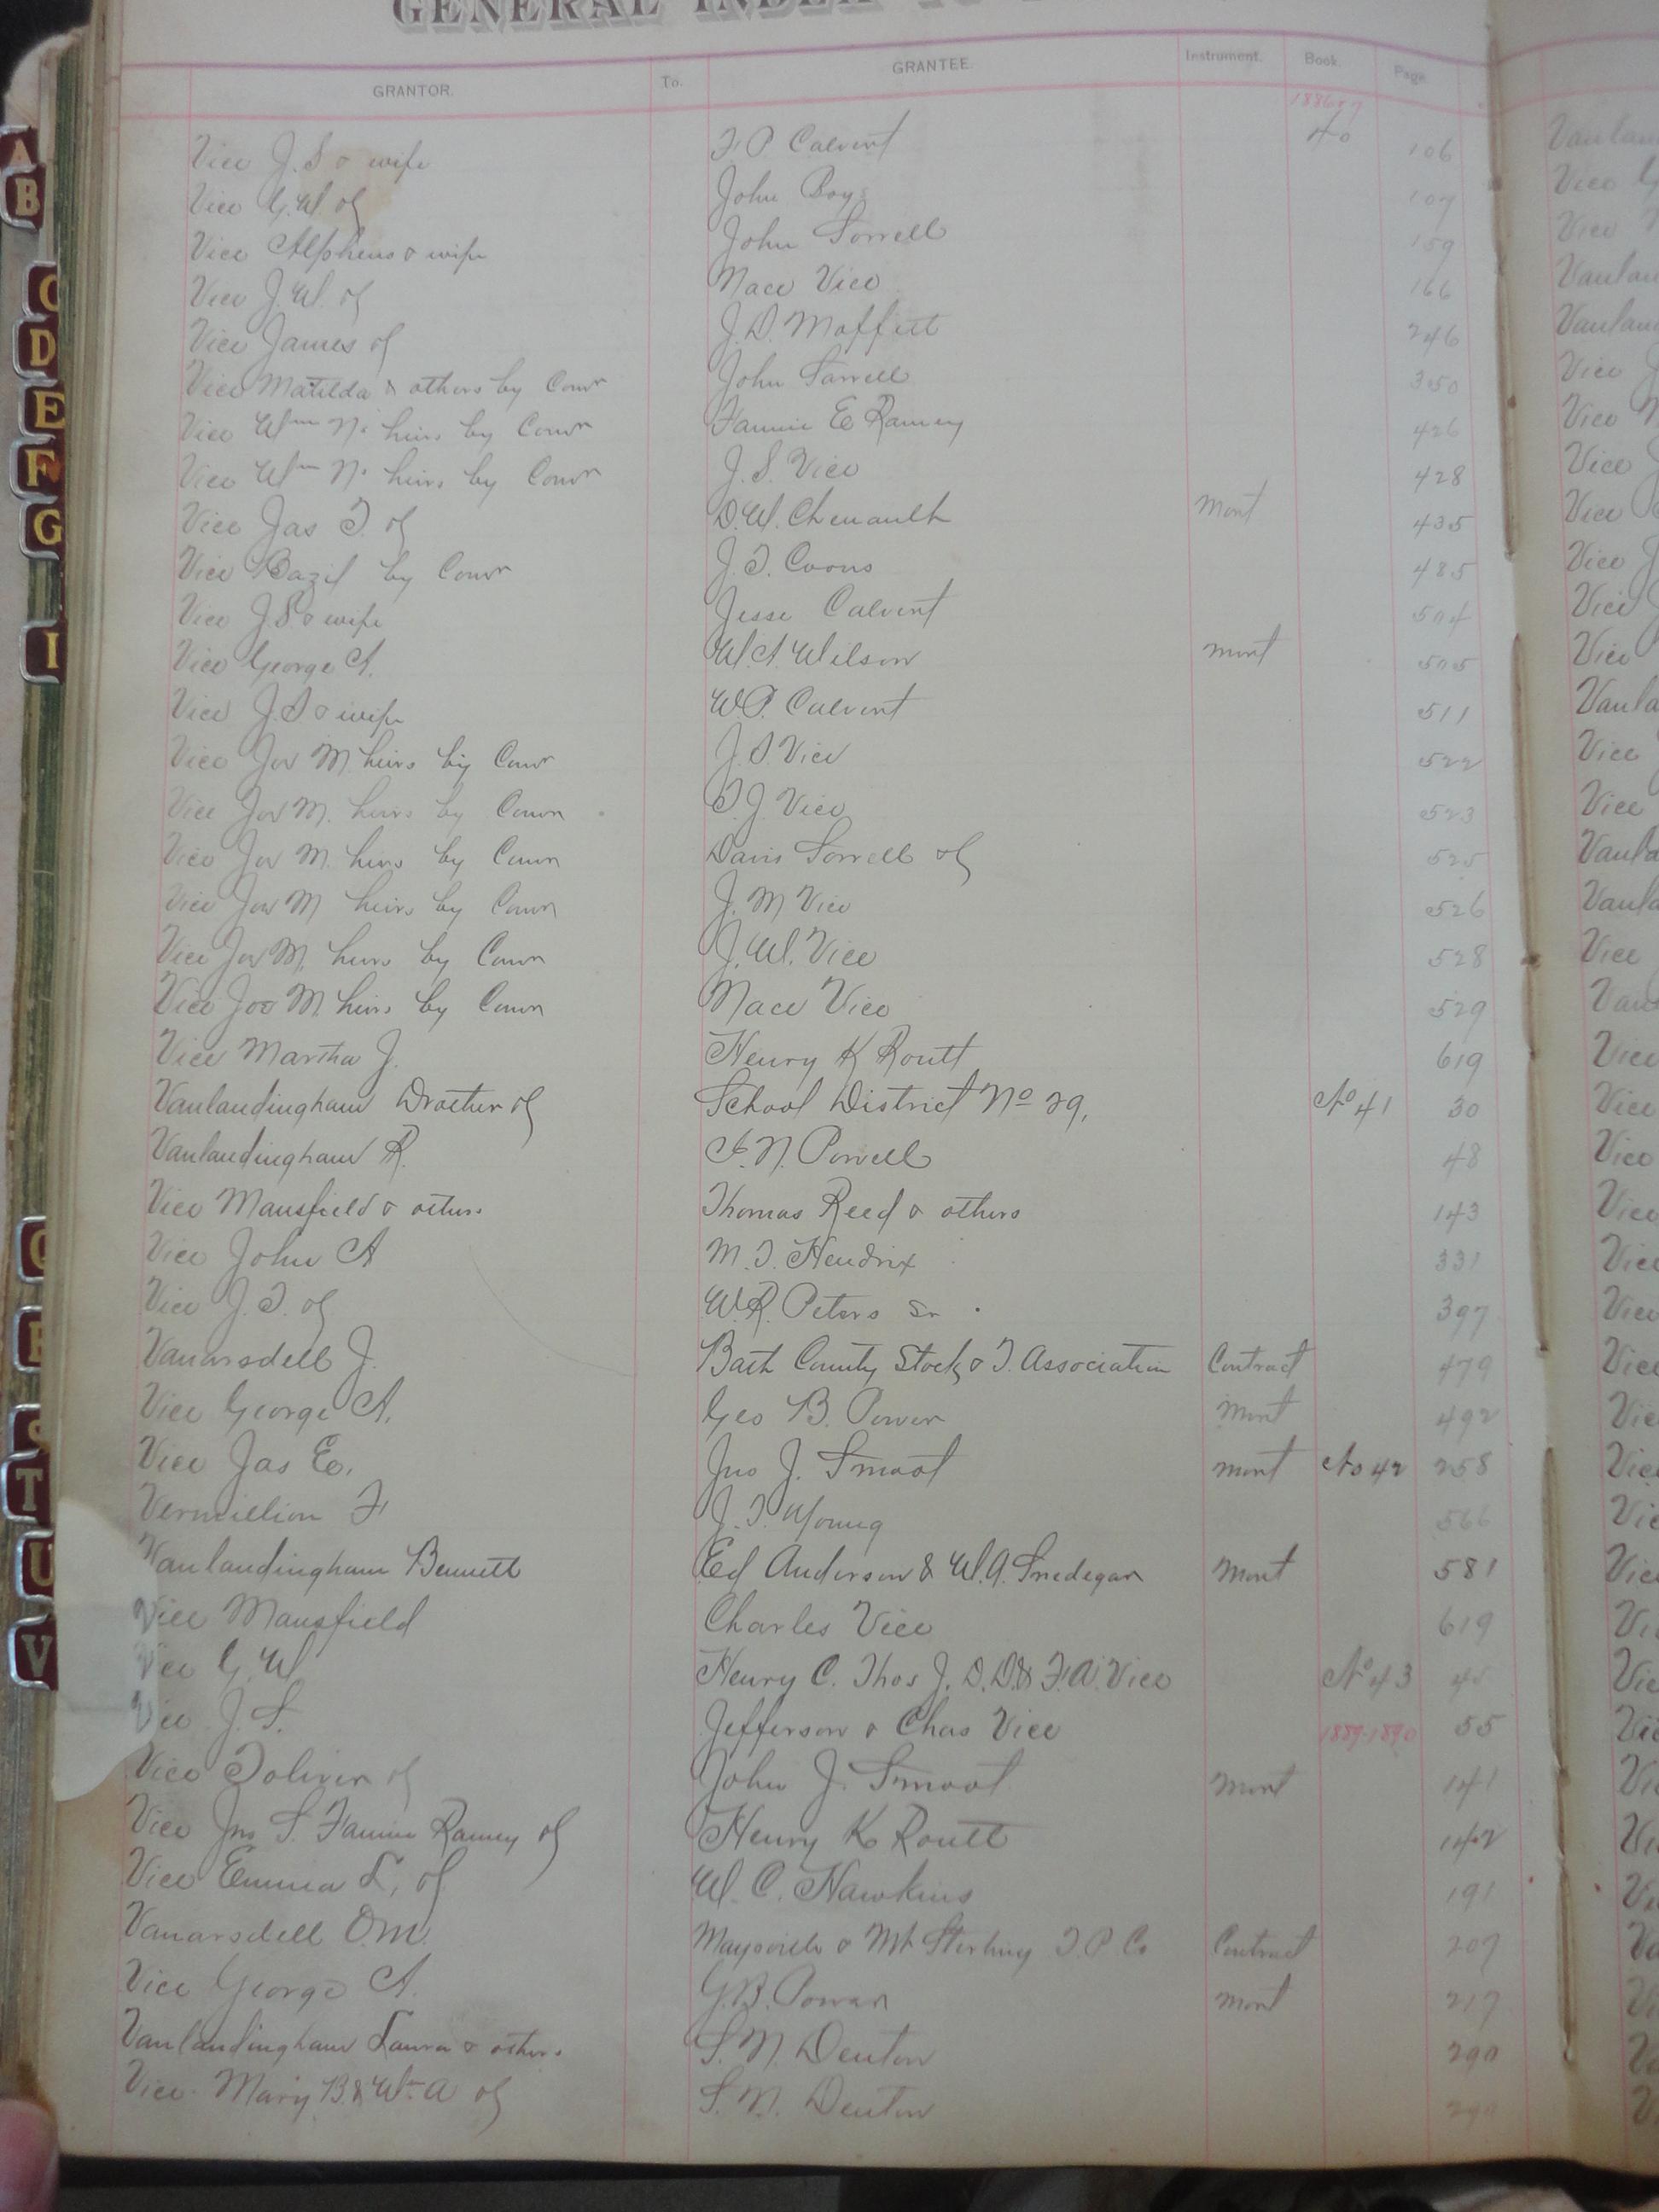 GENERAL INDEX
GRANTOR. To. GRANTEE. Instrument. Book. Page
1886 87
Vice J. S & wife F. P Calvert 40 106
Vice G. W of John Boyd 107
Vice Alpheus & wife John Sorrell 159
Vice J. W. of Mace Vice 166
Vice James of J. D. Moffett 246
Vice Matilda & others by Comr John Sorrell 350
Vice Wm N. heirs by Comr Fannie E Ramey 426
Vice Wm N. heirs by Comr J. S. Vice 428
Vice Jas T. of D. W. Chenault Mort 435
Vice Bazil by Comr J. T. Coons 485
Vice J. S & wife Jesse Calvert 504
Vice George A. W. A. Wilson mort 505
Vice J. S & wife W. P. Calvert 511
Vice Jos M. heirs by Comr J. S. Vice 522
Vice Jos M. heirs by Comr T. J. Vice 523
Vice Jos M. heirs by Comr Davis Sorrell of 525
Vice Jos M heirs by Comr J. M Vice 526
Vice Jos M. heirs by Comr J. W. Vice 528
Vice Jos M. heirs by Comr Mace Vice 529
Vice Martha J. Henry K Routt 619
Vanlandingham of School District No 29. No 41 30
Vanlandingham R. N. Powell 48
Vice Mansfield & others Thomas Reed & others 143
Vice John A M. T. Hendrix 331
Vice J. T. of W. R. Peters Sr 397
Vanarsdell J. Bath County Stock & T. Association Contract 479
Vice George A. Geo B. Power Mort 492
Vice Jas E. Jno J. Smoot mort No 42 258
Vermillion F J. T. Young 566
Vanlandingham Bennett Ed Anderson & W. A. Snedegar Mort 581
Vice Mansfield Charles Vice 619
Vice G. W Henry C. Thos J. D. D. & F. A. Vice No 43
Vice J. S. Jefferson & Chas Vice 1889-1890 55
Vice Toliver of John J. Smoot Mort 141
Vice Jno S. Fannie Ramey of Henry K Routt 142
Vice Emma L. of W. C. Hawkins 191
Vanarsdell O. M. Maysville & Mt Sterling T. P. Co Contract 207
Vice George A. G. B. Power mort 217
Vanlandingham Laura & others S. N. Denton 290
Vice Mary B & Wm A of S. N. Denton